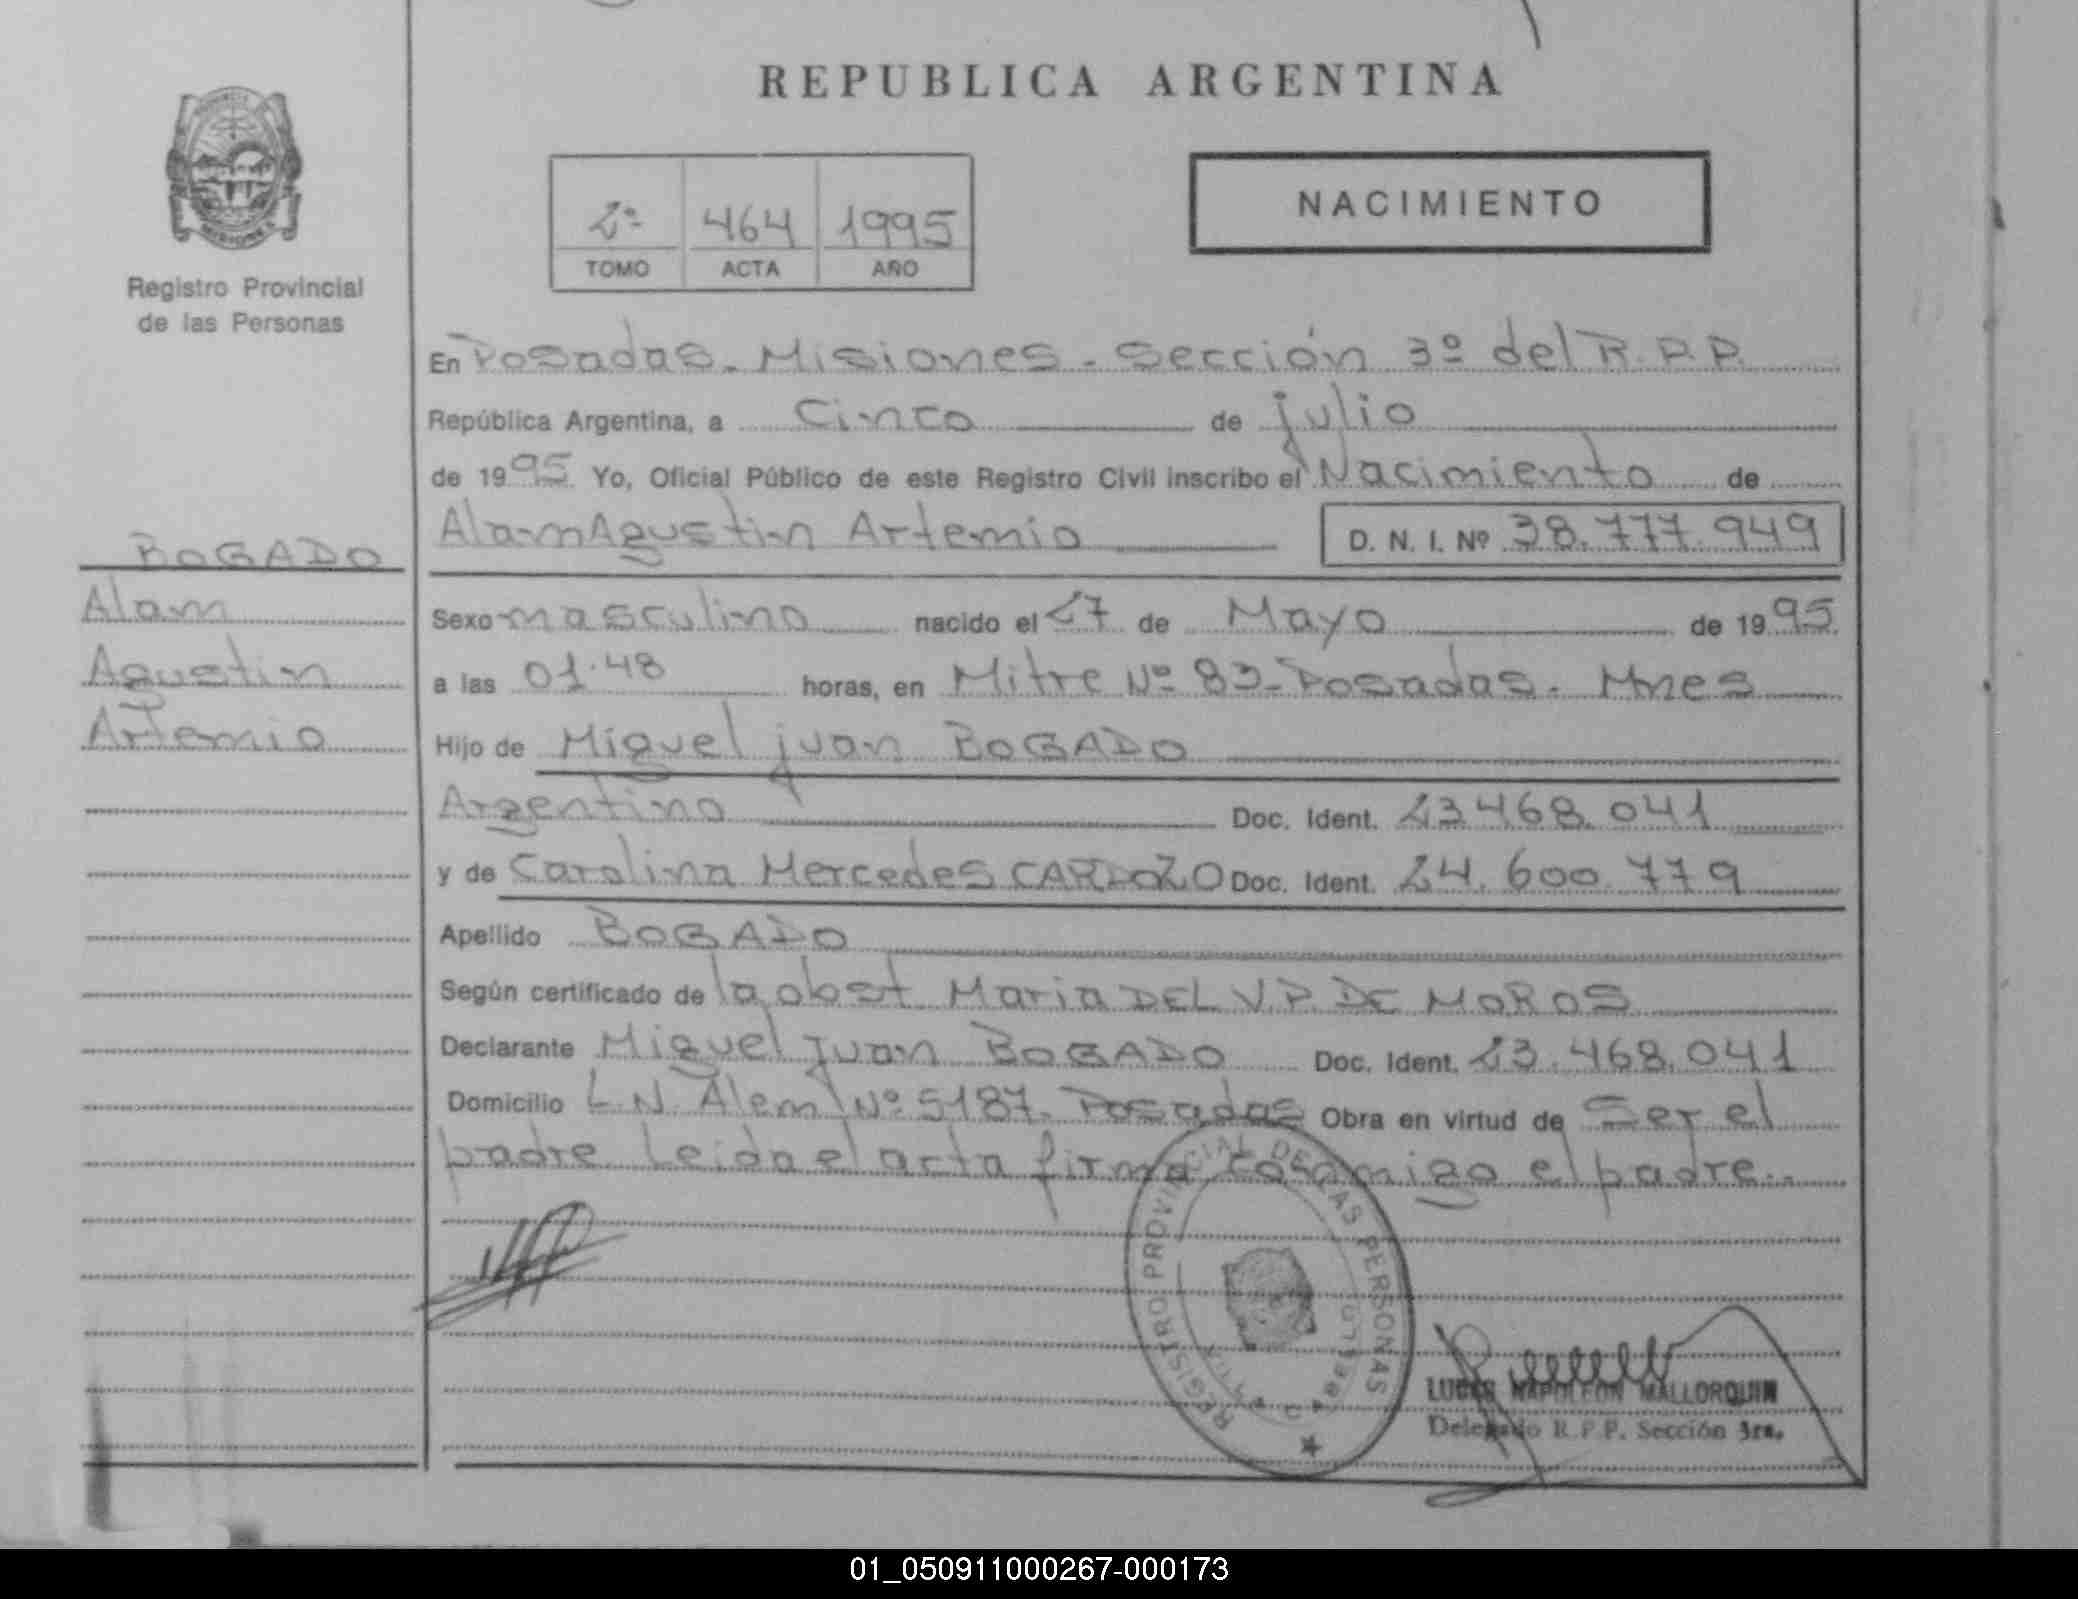 REPUBLICA ARGENTINA
NACIMIENTO
2º 464 1995
TOMO ACTA AÑO
MISIONES
Registro Provincial
de las Personas
En Posadas. Misiones - Sección 3º del R.P.P.
República Argentina, a Cinco de julio
de 1995 Yo, Oficial Público de este Registro Civil inscribo el Nacimiento de
Alam Agustin Artemio D. N. I. Nº 38.777.949
BOGADO
Alam
Agustin
Artemio
Sexo masculino nacido el 27 de Mayo de 1995
a las 01.48 horas, en Mitre Nº 83 - Posadas. Mnes
Hijo de Miguel juan BOGADO
Argentino Doc. Ident. 23.468.041
y de Carolina Mercedes CARDOZO Doc. Ident. 24.600.779
Apellido BOGADO
Según certificado de la obst Maria DEL V.P. DE MOROS
Declarante Miguel Juan BOGADO Doc. Ident. 23.468.041
Domicilio L.N. Alem Nº 5187. Posadas Obra en virtud de Ser el
padre. Leida el acta firma conmigo el padre..
REGISTRO PROVINCIAL DE LAS PERSONAS
NAPOLEON MALLORQUIN
Delegado R.P.P. Sección 3ra.
01_050911000267-000173